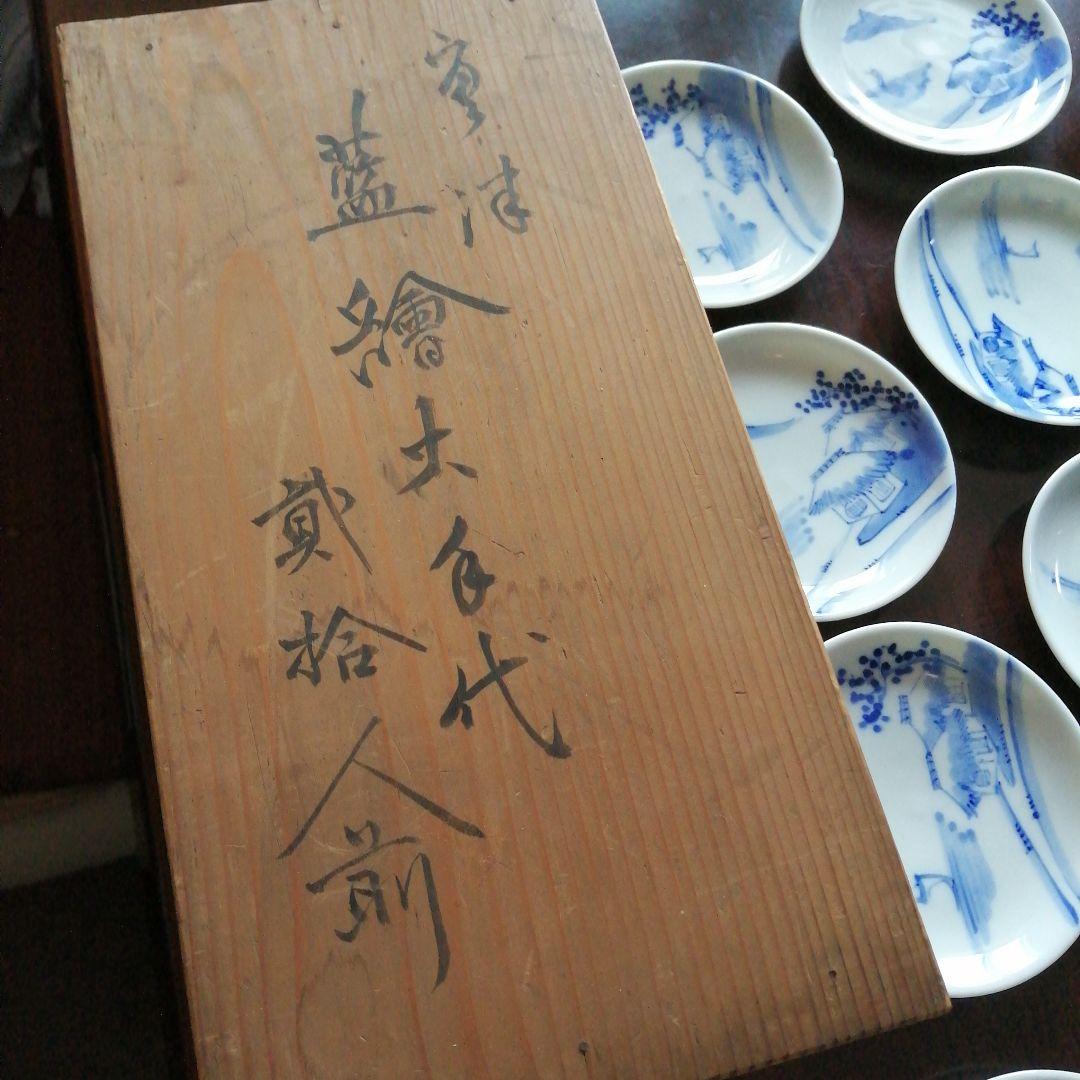 津
藍繪大手代
貳拾人前